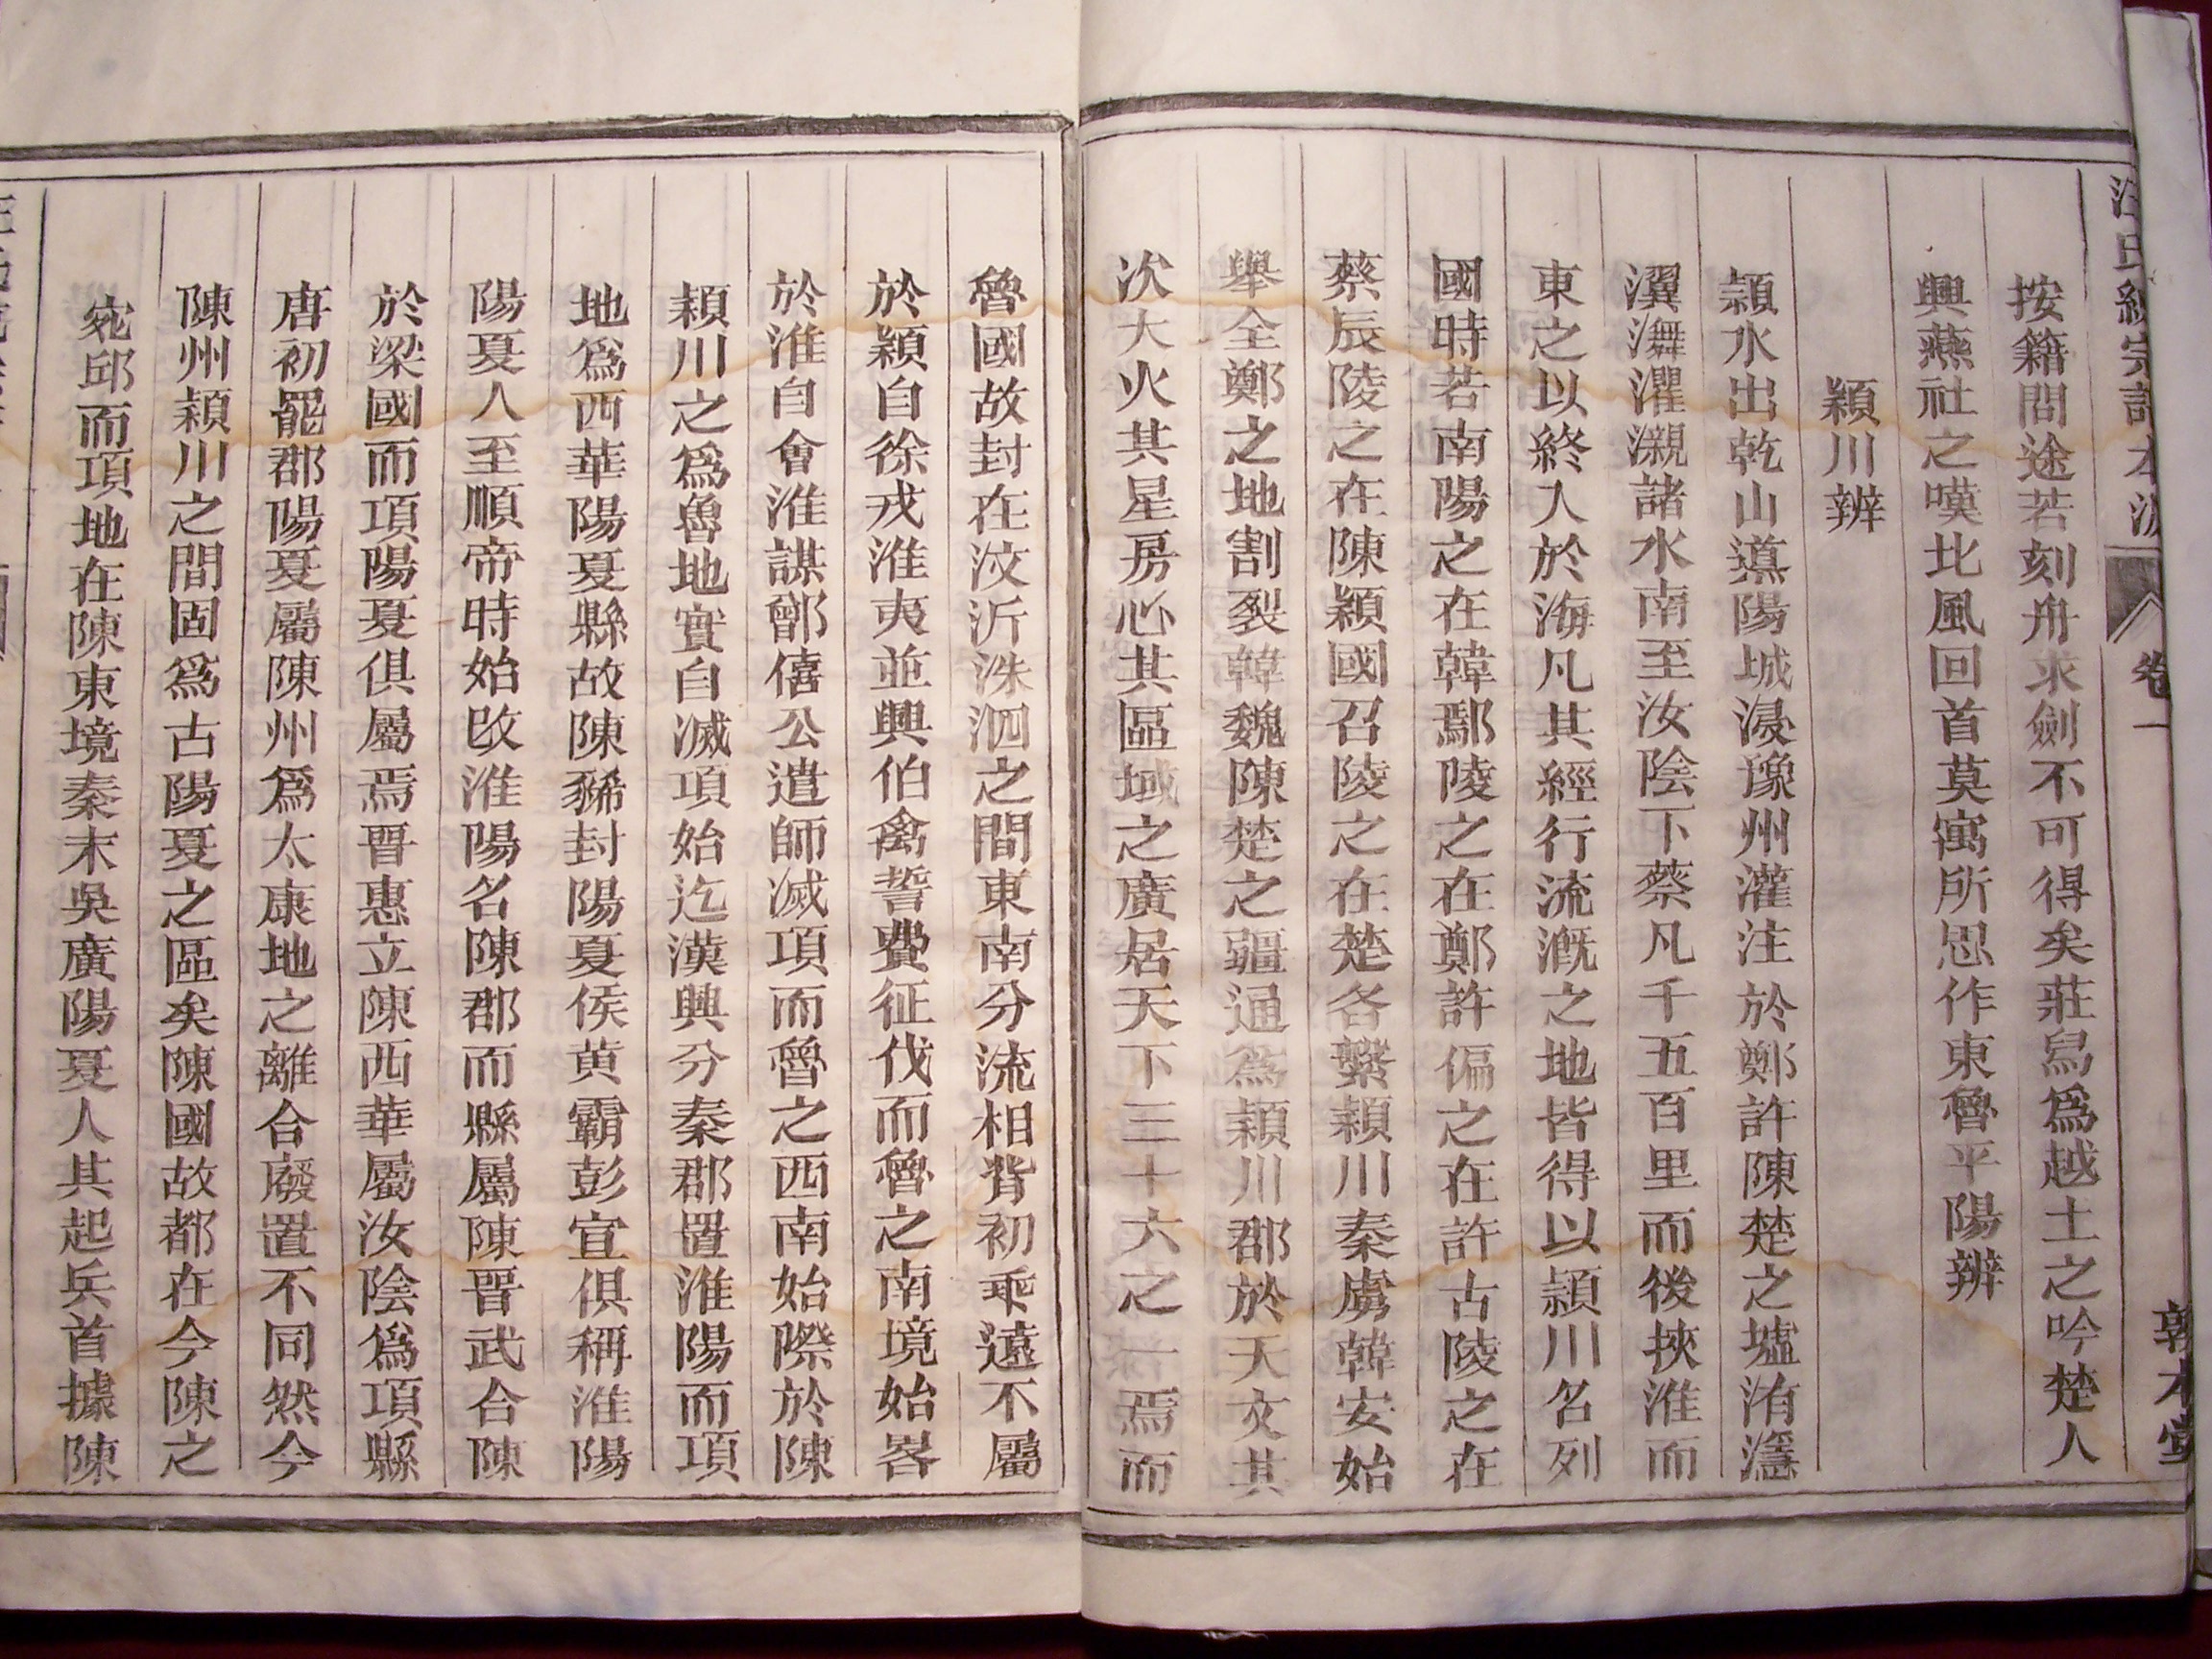 汪氏統宗譜本源 卷一 敦木堂
按籍問途若刻舟求劍不可得矣莊舄爲越土之吟楚人
興燕社之嘆北風回首莫寓所思作東魯平陽辨
潁川辨
潁水出乾山𨗉陽城浸豫州灌注於鄭許陳楚之墟洧濦
瀷潕灈瀙諸水南至汝陰下蔡凡千五百里而後挾淮而
東之以終入於海凡其經行流溉之地皆得以潁川名列
國時若南陽之在韓鄢陵之在鄭許偪之在許古陵之在
蔡辰陵之在陳潁國召陵之在楚各繫潁川秦虜韓安始
舉全鄭之地割裂韓魏陳楚之疆通爲潁川郡於天文其
次大火其星房心其區域之廣居天下三十六之一焉而
魯國故封在汶沂洙泗之間東南分流相背初乖遠不屬
於潁自徐戎淮夷並興伯禽誓費征伐而魯之南境始畧
於淮自會淮謀鄫僖公遣師滅項而魯之西南始際於陳
潁川之爲魯地實自滅項始迄漢興分秦郡置淮陽而項
地爲西華陽夏縣故陳豨封陽夏侯黄霸彭宣俱稱淮陽
陽夏人至順帝時始改淮陽名陳郡而縣屬陳晋武合陳
於梁國而項陽夏俱屬焉晋惠立陳西華屬汝陰爲項縣
唐初罷郡陽夏屬陳州爲太康地之離合廢置不同然今
陳州潁川之間固爲古陽夏之區矣陳國故都在今陳之
宛邱而項地在陳東境秦末吳廣陽夏人其起兵首據陳